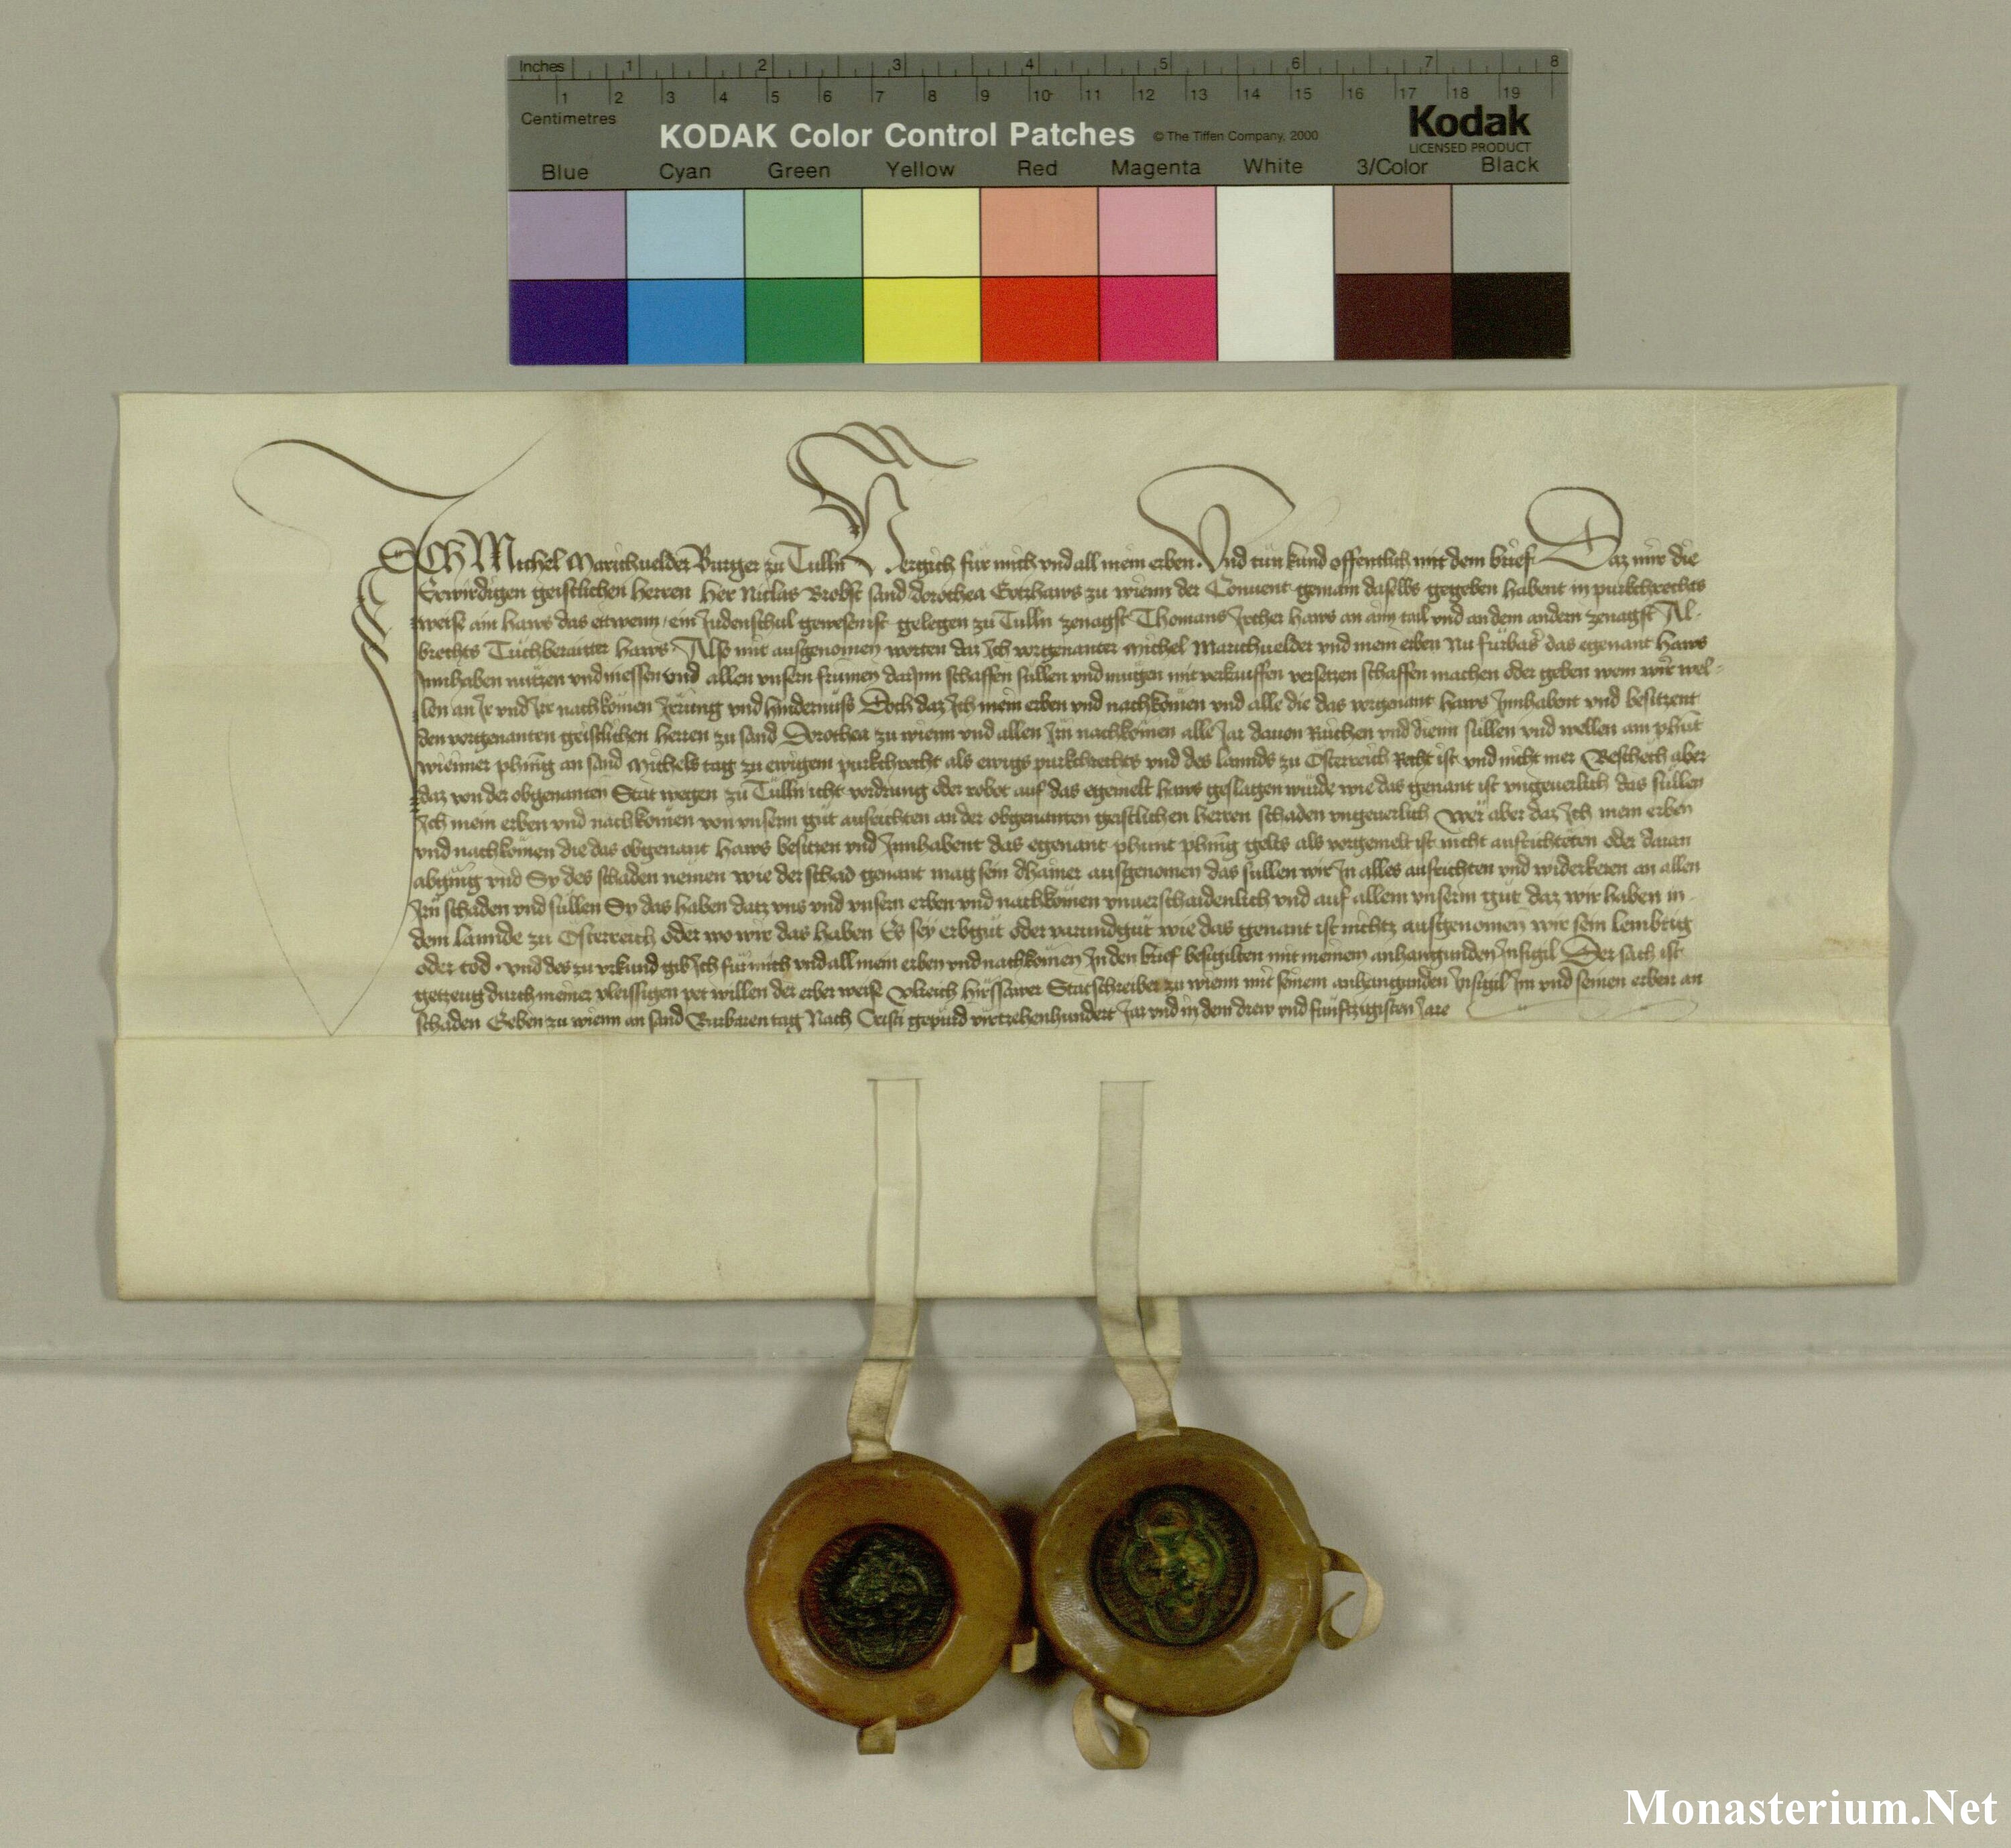 Inches 1 2 3 4 5 6 7 8
1 2 3 4 5 6 7 8 9 10 11 12 13 14 15 16 17 18 19
Centimetres
KODAK Color Control Patches © The Tiffen Company, 2000 Kodak
LICENSED PRODUCT
Blue Cyan Green Yellow Red Magenta White 3/Color Black
ICH Michel Marichuelder Burger zu Tulln Vergich für mich vnd all mein erben Vnd tün kund offentlich mit dem brief Daz mir die
Erwirdigen geistlichen Herren Her Niclas Brobst sand Dorothea Gotzhaws zu wienn der Conuent gemain daselbs gegeben habent in purkchrechts
weise ain Haws das etwenn ein Judenschul gewesen ist gelegen zu Tulln zenagst Thomans Ircher Haws an aim tail vnd an dem andern zenagst Al-
brechts Tuchberaitter Haws Also mit ausgenomen worten daz Ich vorgenanter Michel Marichuelder vnd mein erben Nu fürbas das egenant Haws
Innhaben nützen vnd niessen vnd allen vnsern frumen darInn schaffen süllen vnd mügen mit verkauffen versetzen schaffen machen oder geben wem wir wel-
len an Ir vnd Ir nachkömen Irrung vnd hindernüss Doch daz Ich mein erben vnd nachkömen vnd alle die das vorgenant Haws Innhabent vnd besitzent
den vorgenanten geistlichen Herren zu sand Dorothea zu wienn vnd allen Irn nachkömen alle Jar dauon Raichen vnd dienn süllen vnd wellen ain phunt
wienner phenig an sand Michels tag zu ewigem purkchrecht als ewigs purkchrechts vnd des lannds zu Österreich Recht ist vnd nicht mer Beschech aber
daz von der obgenanten Stat wegen zu Tulln icht vordrung oder robot auf das egemelt haws geslagen würde wie das genant ist vngeuerlich das süllen
Ich mein erben vnd nachkomen von vnserm güt ausrichten an der obgenanten geistlichen Herren schaden vngeuerlich Wer aber daz Ich mein erben
vnd nachkömen die das obgenant Haws besitzen vnd Innhabent das egenant phunt phenig gelts als vorgemelt ist nicht ausrichteten oder daran
abgieng vnd Sy des schaden nemen wie der schad genant mag sein dhainer ausgenomen das sullen wir In alles ausrichten vnd widerkeren an allen
Irn schaden vnd sullen Sy das haben datz vns vnd vnsern erben vnd nachkömen vnuerschaidenlich vnd auf allem vnserm güt daz wir haben in
dem lannde zu Österreich oder wo wir das haben Es sey erbgüt oder varundgüt wie das genant ist nichtz ausgenomen wir sein lembtig
oder tod vnd des zu vrkund gib Ich für mich vnd all mein erben vnd nachkömen In den brief besigilten mit meinem anhangunden Insigil Der sach ist
getzeug durch meiner vleissigen pet willen der erber weise Vlreich Hirssawer Statschreiber zu wienn mit seinem anhangunden Insigil Im vnd seinen erben an
schaden Geben zu wienn an sand Barbaren tag Nach Cristi gepurd viertzehenhundert Jar vnd in dem drew vnd funftzigisten Jare
Monasterium.Net